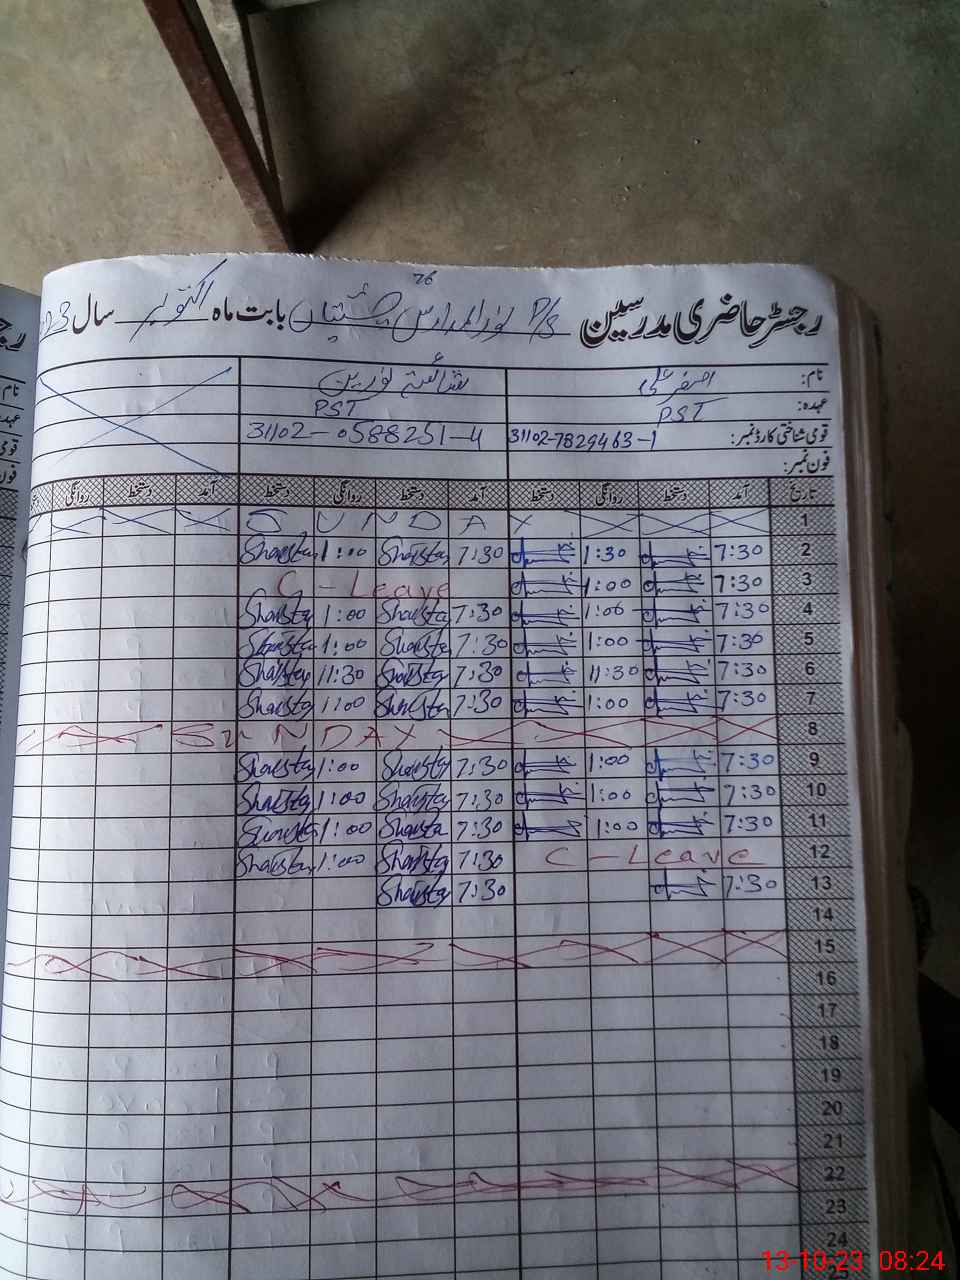 26
رجسٹر حاضری مدرسین P/S نور المدارس چشتیاں بابت ماہ اکتوبر سال
نام: اصغر علی شائستہ نورین
عہدہ: PST PST
قومی شناختی کارڈ نمبر: 31102-7829463-1 31102-0588251-4
فون نمبر:
تاریخ آمد دستخط روانگی دستخط آمد دستخط روانگی دستخط آمد دستخط روانگی
1 SUNDAY
2 7:30 1:30 7:30 Shaista 1:00 Shaista
3 7:30 1:00 C-Leave
4 7:30 1:00 7:30 Shaista 1:00 Shaista
5 7:30 1:00 7:30 Shaista 1:00 Shaista
6 7:30 11:30 7:30 Shaista 11:30 Shaista
7 7:30 1:00 7:30 Shaista 1:00 Shaista
8 SUNDAY
9 7:30 1:00 7:30 Shaista 1:00 Shaista
10 7:30 1:00 7:30 Shaista 1:00 Shaista
11 7:30 1:00 7:30 Shaista 1:00 Shaista
12 C-Leave 7:30 Shaista 1:00 Shaista
13 7:30 7:30 Shaista
14
15
16
17
18
19
20
21
22
23
24
13-10-23 08:24